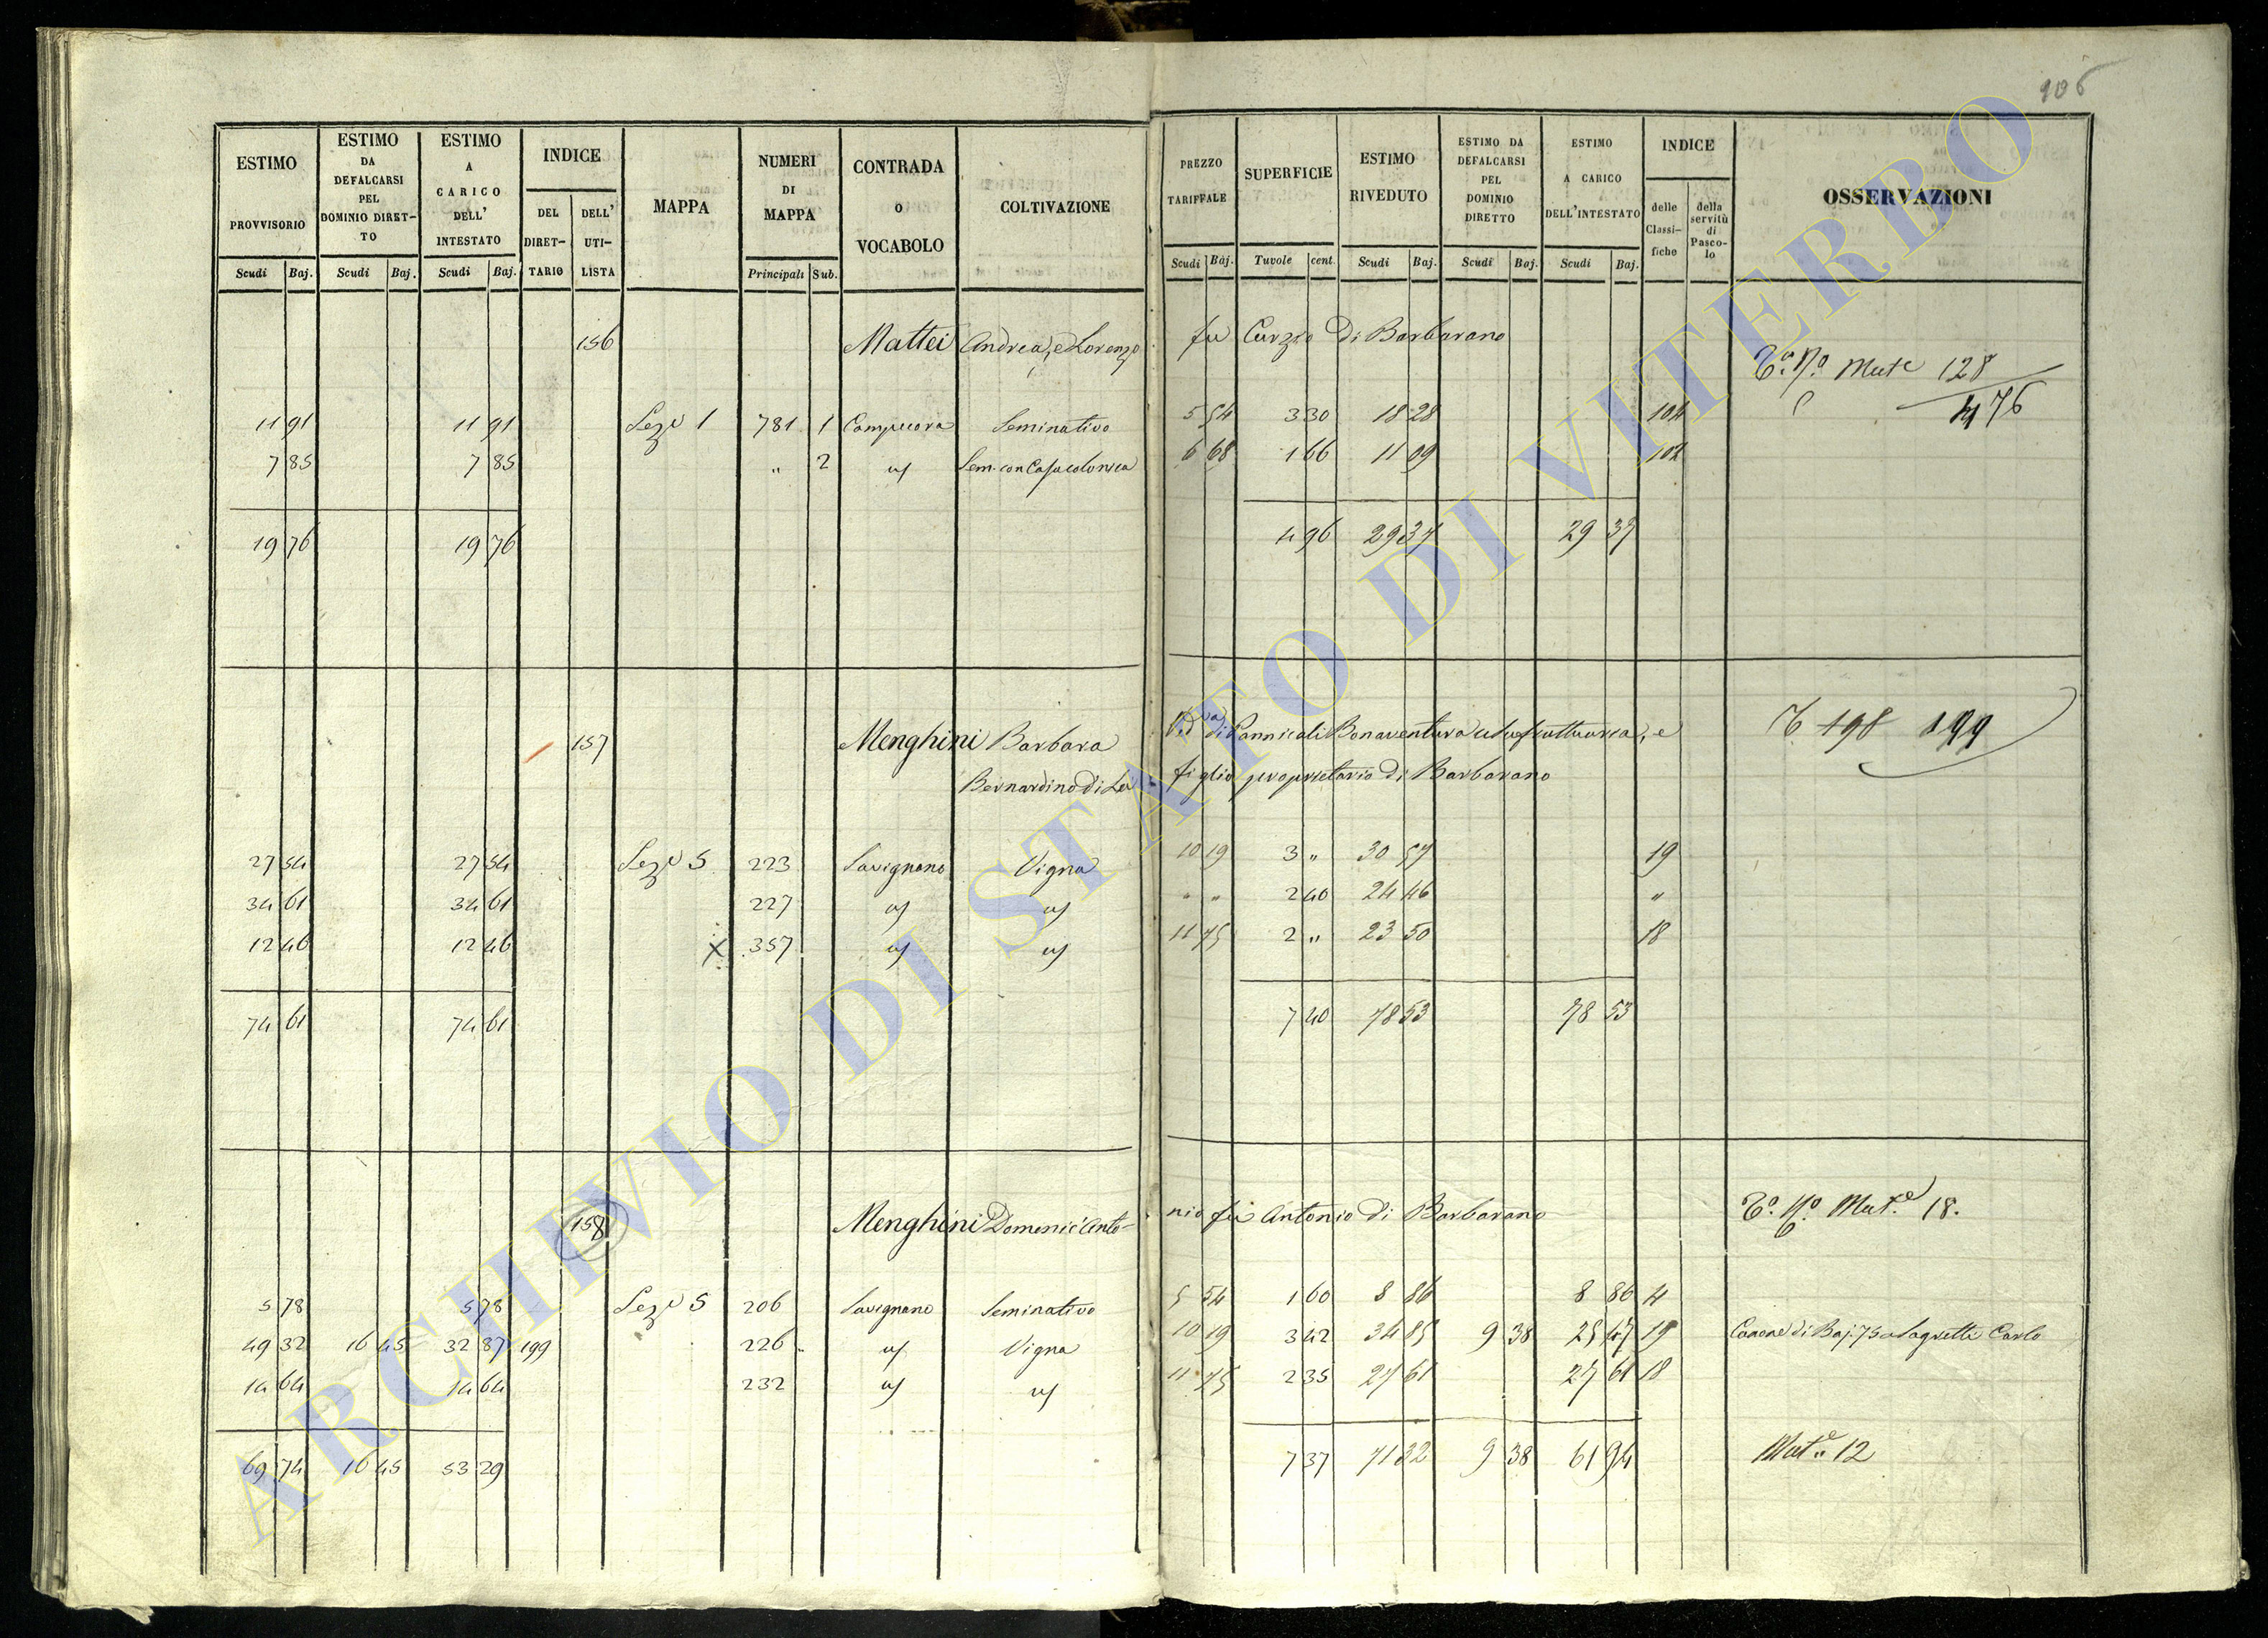 106
ESTIMO PROVVISORIO
ESTIMO DA DEFALCARSI PEL DOMINIO DIRETTO
ESTIMO A CARICO DELL' INTESTATO
INDICE
DEL DIRETTARIO
DELL' UTILISTA
MAPPA
NUMERI DI MAPPA
CONTRADA O VOCABOLO
COLTIVAZIONE
PREZZO TARIFFALE
SUPERFICIE
ESTIMO RIVEDUTO
ESTIMO DA DEFALCARSI PEL DOMINIO DIRETTO
ESTIMO A CARICO DELL'INTESTATO
INDICE
delle Classifiche
della servitù di Pascolo
OSSERVAZIONI
Scudi Baj. Scudi Baj. Scudi Baj. Principali Sub. Scudi Baj. Tavole cent. Scudi Baj. Scudi Baj. Scudi Baj.
156 Mattei Andrea, e Lorenzo fu Curzio di Barbarano
128
476
11 91 11 91 Sez. 1 781 1 Seminativo 5 54 3 30 18 28 104
7 85 7 85 " 2 Sem. con Casa colonica 6 68 1 66 11 09 102
19 76 19 76 4 96 29 37 29 37
157 Menghini Barbara Vid.a di Pannicali Bonaventura usufruttuaria, e
Bernardino di Lei figlio proprietario di Barbarano
198 199
27 54 27 54 Sez. 5 223 Savignano Vigna 10 19 3 " 30 57 19
34 61 34 61 227 " " 2 40 24 46 "
12 46 12 46 X 357 11 75 2 " 23 50 18
74 61 74 61 7 40 78 53 78 53
158 Menghini Domenic'Antonio fu Antonio di Barbarano 18.
5 78 5 78 Sez. 5 206 Savignano Seminativo 5 54 1 60 8 86 8 86 4
49 32 16 45 32 87 199 226 Vigna 10 19 3 42 34 85 9 38 25 47 19 Canone di Baj. 75 a Carlo
14 64 14 64 232 11 75 2 35 27 61 27 61 18
69 74 16 45 53 29 7 37 71 32 9 38 61 94 Mut.e 12
ARCHIVIO DI STATO DI VITERBO